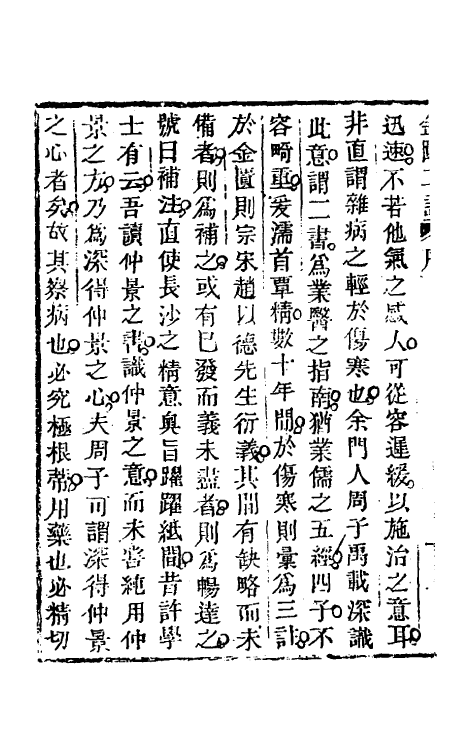 迅速不若他氣之感人可從容遲緩以施治之意耳
非直謂雜病之輕於傷寒也余門人周子禹載深識
此意謂二書為業醫之指南猶業儒之五經四子不
容畸重爰濡首覃精數十年間於傷寒則彙為三註
於金匱則宗宋趙以德先生衍義其間有缺略而未
備者則為補之或有已發而義未盡者則為暢達之
號曰補注直使長沙之精意奧旨躍躍紙間昔許學
士有云吾讀仲景之書識仲景之意而未嘗純用仲
景之方乃為深得仲景之心夫周子可謂深得仲景
之心者矣故其察病也必究極根蒂用藥也必精切